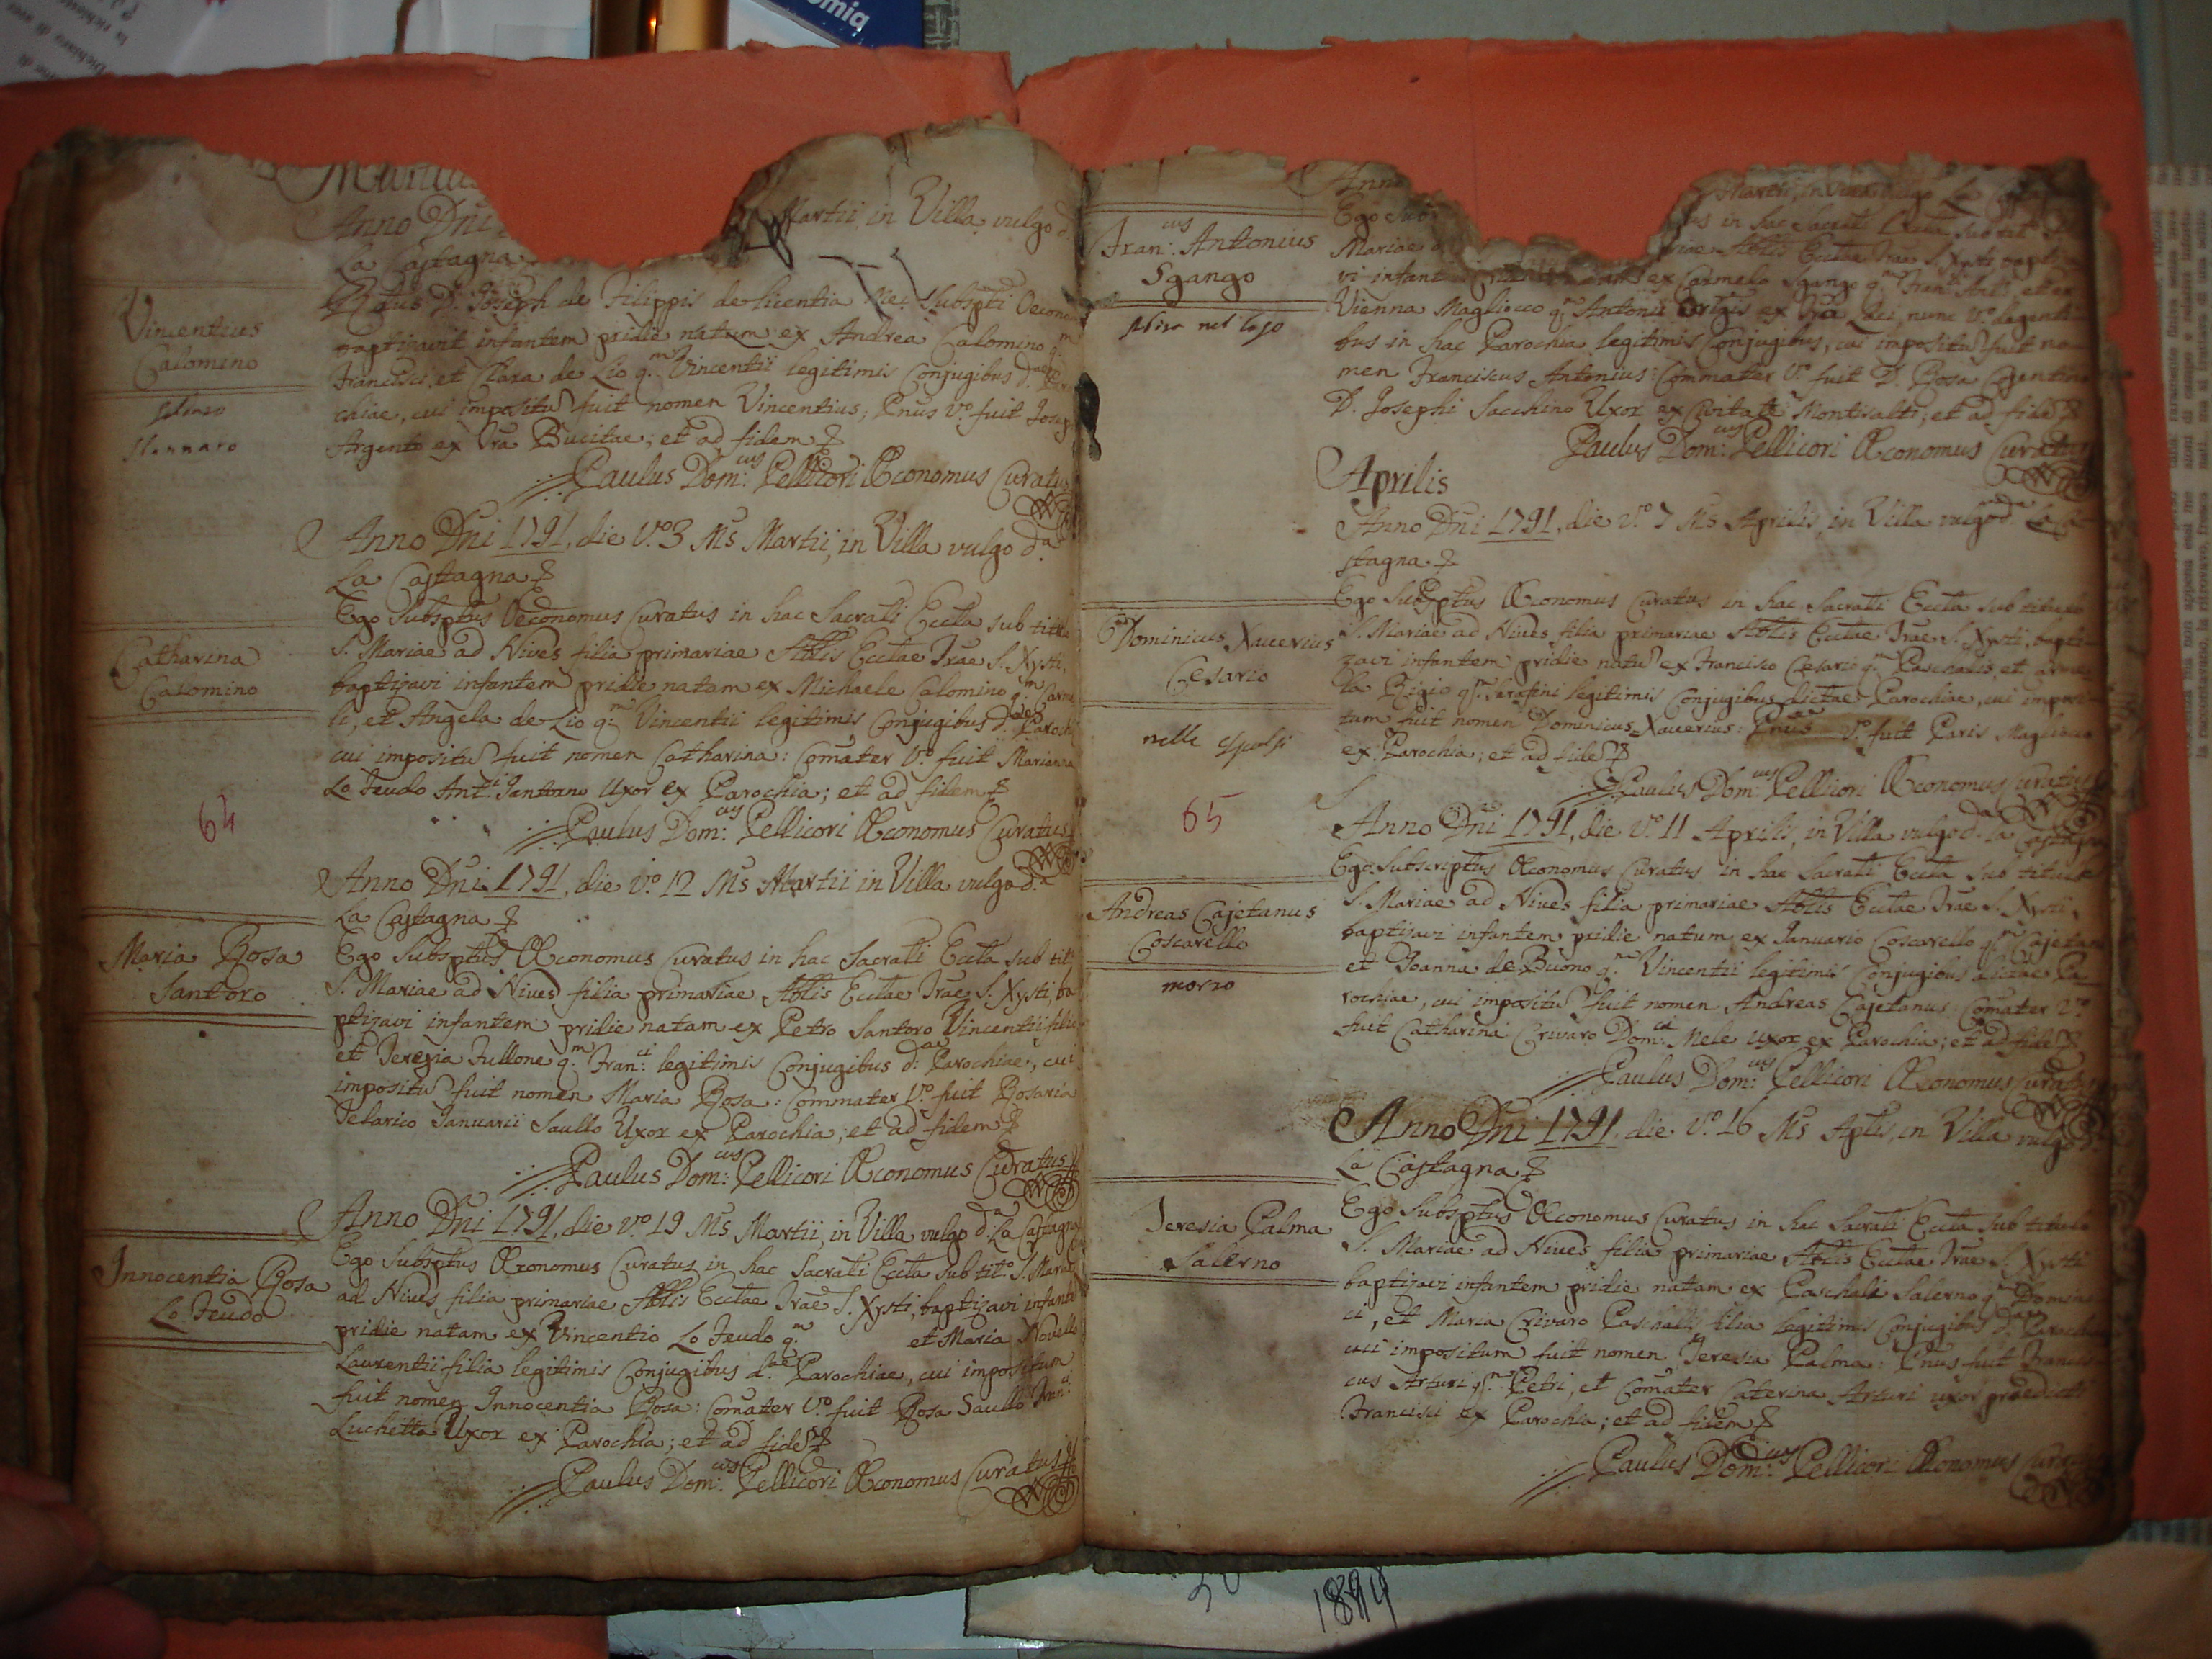 Martius
Anno Dni
Martii, in Villa vulgo d.
La Castagna
Vincentius
Calomino
D. Joseph de Filippis de licentia Mei Subspti Oecono
baptizavit infantem pridie natum ex Andrea Calomino q.m
Francisci, et Clara de Lio q.m Vincentii legitimis Conjugibus d.ae
chiae, cui impositū fuit nomen Vincentius; Pnus V.o fuit Josep
Argento ex Tra Bucitae; et ad fidem
Paulus Dom.cus Pellicori Œconomus Curatus
Anno Dni 1791, die V.o 3 Ms Martii, in Villa vulgo d.a
La Castagna
Catharina
Calomino
Ego Subsptus Oeconomus Curatus in hac Sacrati Eccta sub titlo
S. Mariae ad Nives filia primariae Abtis Ecctae Trae S. Xysti,
baptizavi infantem pridie natam ex Michaele Calomino q.m Carme
li, et Angela de Lio q.m Vincentii legitimis Conjugibus d.ae Parochi
cui impositū fuit nomen Catharina: Comater V.o fuit Marianna
Lo Feudo Ant.i Uxor ex Parochia; et ad fidem
Paulus Dom.cus Pellicori Œconomus Curatus
64
Anno Dni 1791, die V.o 12 Ms Martii in Villa vulgo d.a
La Castagna
Maria Rosa
Santoro
Ego Subsptus Œconomus Curatus in hac Sacrati Eccta sub tit.
S. Mariae ad Nives filia primariae Abtis Ecctae Trae S. Xysti, ba
ptizavi infantem pridie natam ex Petro Santoro Vincentii filio
et Teresia Fullone q.m Fran.ci legitimis Conjugibus d.ae Parochiae, cui
impositū fuit nomen Maria Rosa: Commater V.o fuit Rosaria
Telarico Januarii Saullo Uxor ex Parochia; et ad fidem
Paulus Dom.cus Pellicori Œconomus Curatus
Anno Dni 1791, die V.o 19 Ms Martii, in Villa vulgo d.a La Castagna
Innocentia Rosa
Lo Feudo
Ego Subsptus Œconomus Curatus in hac Sacrati Eccta sub tit.o S. Maria
ad Nives filia primariae Abtis Ecctae Trae S. Xysti, baptizavi infante
pridie natam ex Vincentio Lo Feudo q.m et Maria Novello
Laurentii filia legitimis Conjugibus d.ae Parochiae, cui impositum
fuit nomen Innocentia Rosa: Comater V.o fuit Rosa Saullo Fran.ci
Luchetta Uxor ex Parochia; et ad fidē
Paulus Dom.cus Pellicori Œconomus Curatus
Anno
Martii, in Villa vulgo La
Fran.cus Antonius
Sgango
Ego Sub
in hac Sacrati Eccta sub tit.o
Mariae
Abtis Ecctae Trae S. Xysti, bapti
vi infant
ex Carmelo Sgango q.m Fran.ci Ant.i, et ex
Vienna Magliocco q.m Antonii Originis ex Tra Lici, nunc V.o degenti
bus in hac Parochia legitimis Conjugibus, cui impositū fuit no
men Franciscus Antonius: Commater V.o fuit D. Rosa Cosentino
D. Josephi Sacchino Uxor ex Civitate Montisalti; et ad fidē
Paulus Dom.cus Pellicori Œconomus Curatus
Aprilis
Anno Dni 1791, die V.o 7 Ms Aprilis, in Villa vulgo d.a La Ca
stagna
Dominicus Xaverius
Cesario
Ego Subsptus Œconomus Curatus in hac Sacrati Eccta sub titulo
S. Mariae ad Nives filia primariae Abtis Ecctae Trae S. Xysti, bapti
zavi infantem pridie natū ex Francisco Cesario q.m Paschalis, et
la Rigio q.m Serafini legitimis Conjugibus dictae Parochiae, cui imposi
tum fuit nomen Dominicus Xaverius: Pnus V.o fuit Paris Magliocco
ex Parochia; et ad fidē
Paulus Dom.cus Pellicori Œconomus Curatus
65
Anno Dni 1791, die V.o 11 Aprilis, in Villa vulgo d.a La Castagna
Andreas Cajetanus
Coscarello
morto
Ego Subscriptus Œconomus Curatus in hac Sacrati Eccta sub titulo
S. Mariae ad Nives filia primariae Abtis Ecctae Trae S. Xysti,
baptizavi infantem pridie natum ex Januario Coscarello q.m Cajetani
et Joanna de Buono q.m Vincentii legitimis Conjugibus dictae Pa
rochiae, cui impositū fuit nomen Andreas Cajetanus: Comater V.o
fuit Catharina Crivaro Dom.ci Mele Uxor ex Parochia; et ad fidē
Paulus Dom.cus Pellicori Œconomus Curatus
Anno Dni 1791, die V.o 16 Ms Aplis, in Villa vulgo d.
La Castagna
Teresia Palma
Salerno
Ego Subsptus Œconomus Curatus in hac Sacrati Eccta sub titulo
S. Mariae ad Nives filia primariae Abtis Ecctae Trae S. Xysti
baptizavi infantem pridie natam ex Paschale Salerno q.m Domini
ci, et Maria Crivaro Paschalis filia legitimis Conjugibus d.ae Parochiae
cui impositum fuit nomen Teresia Palma: Pnus fuit Francis
cus Arturi q.m Petri, et Comater Caterina Arturi uxor praedicti
Francisci ex Parochia; et ad fidem
Paulus Dom.cus Pellicori Œconomus Curatus